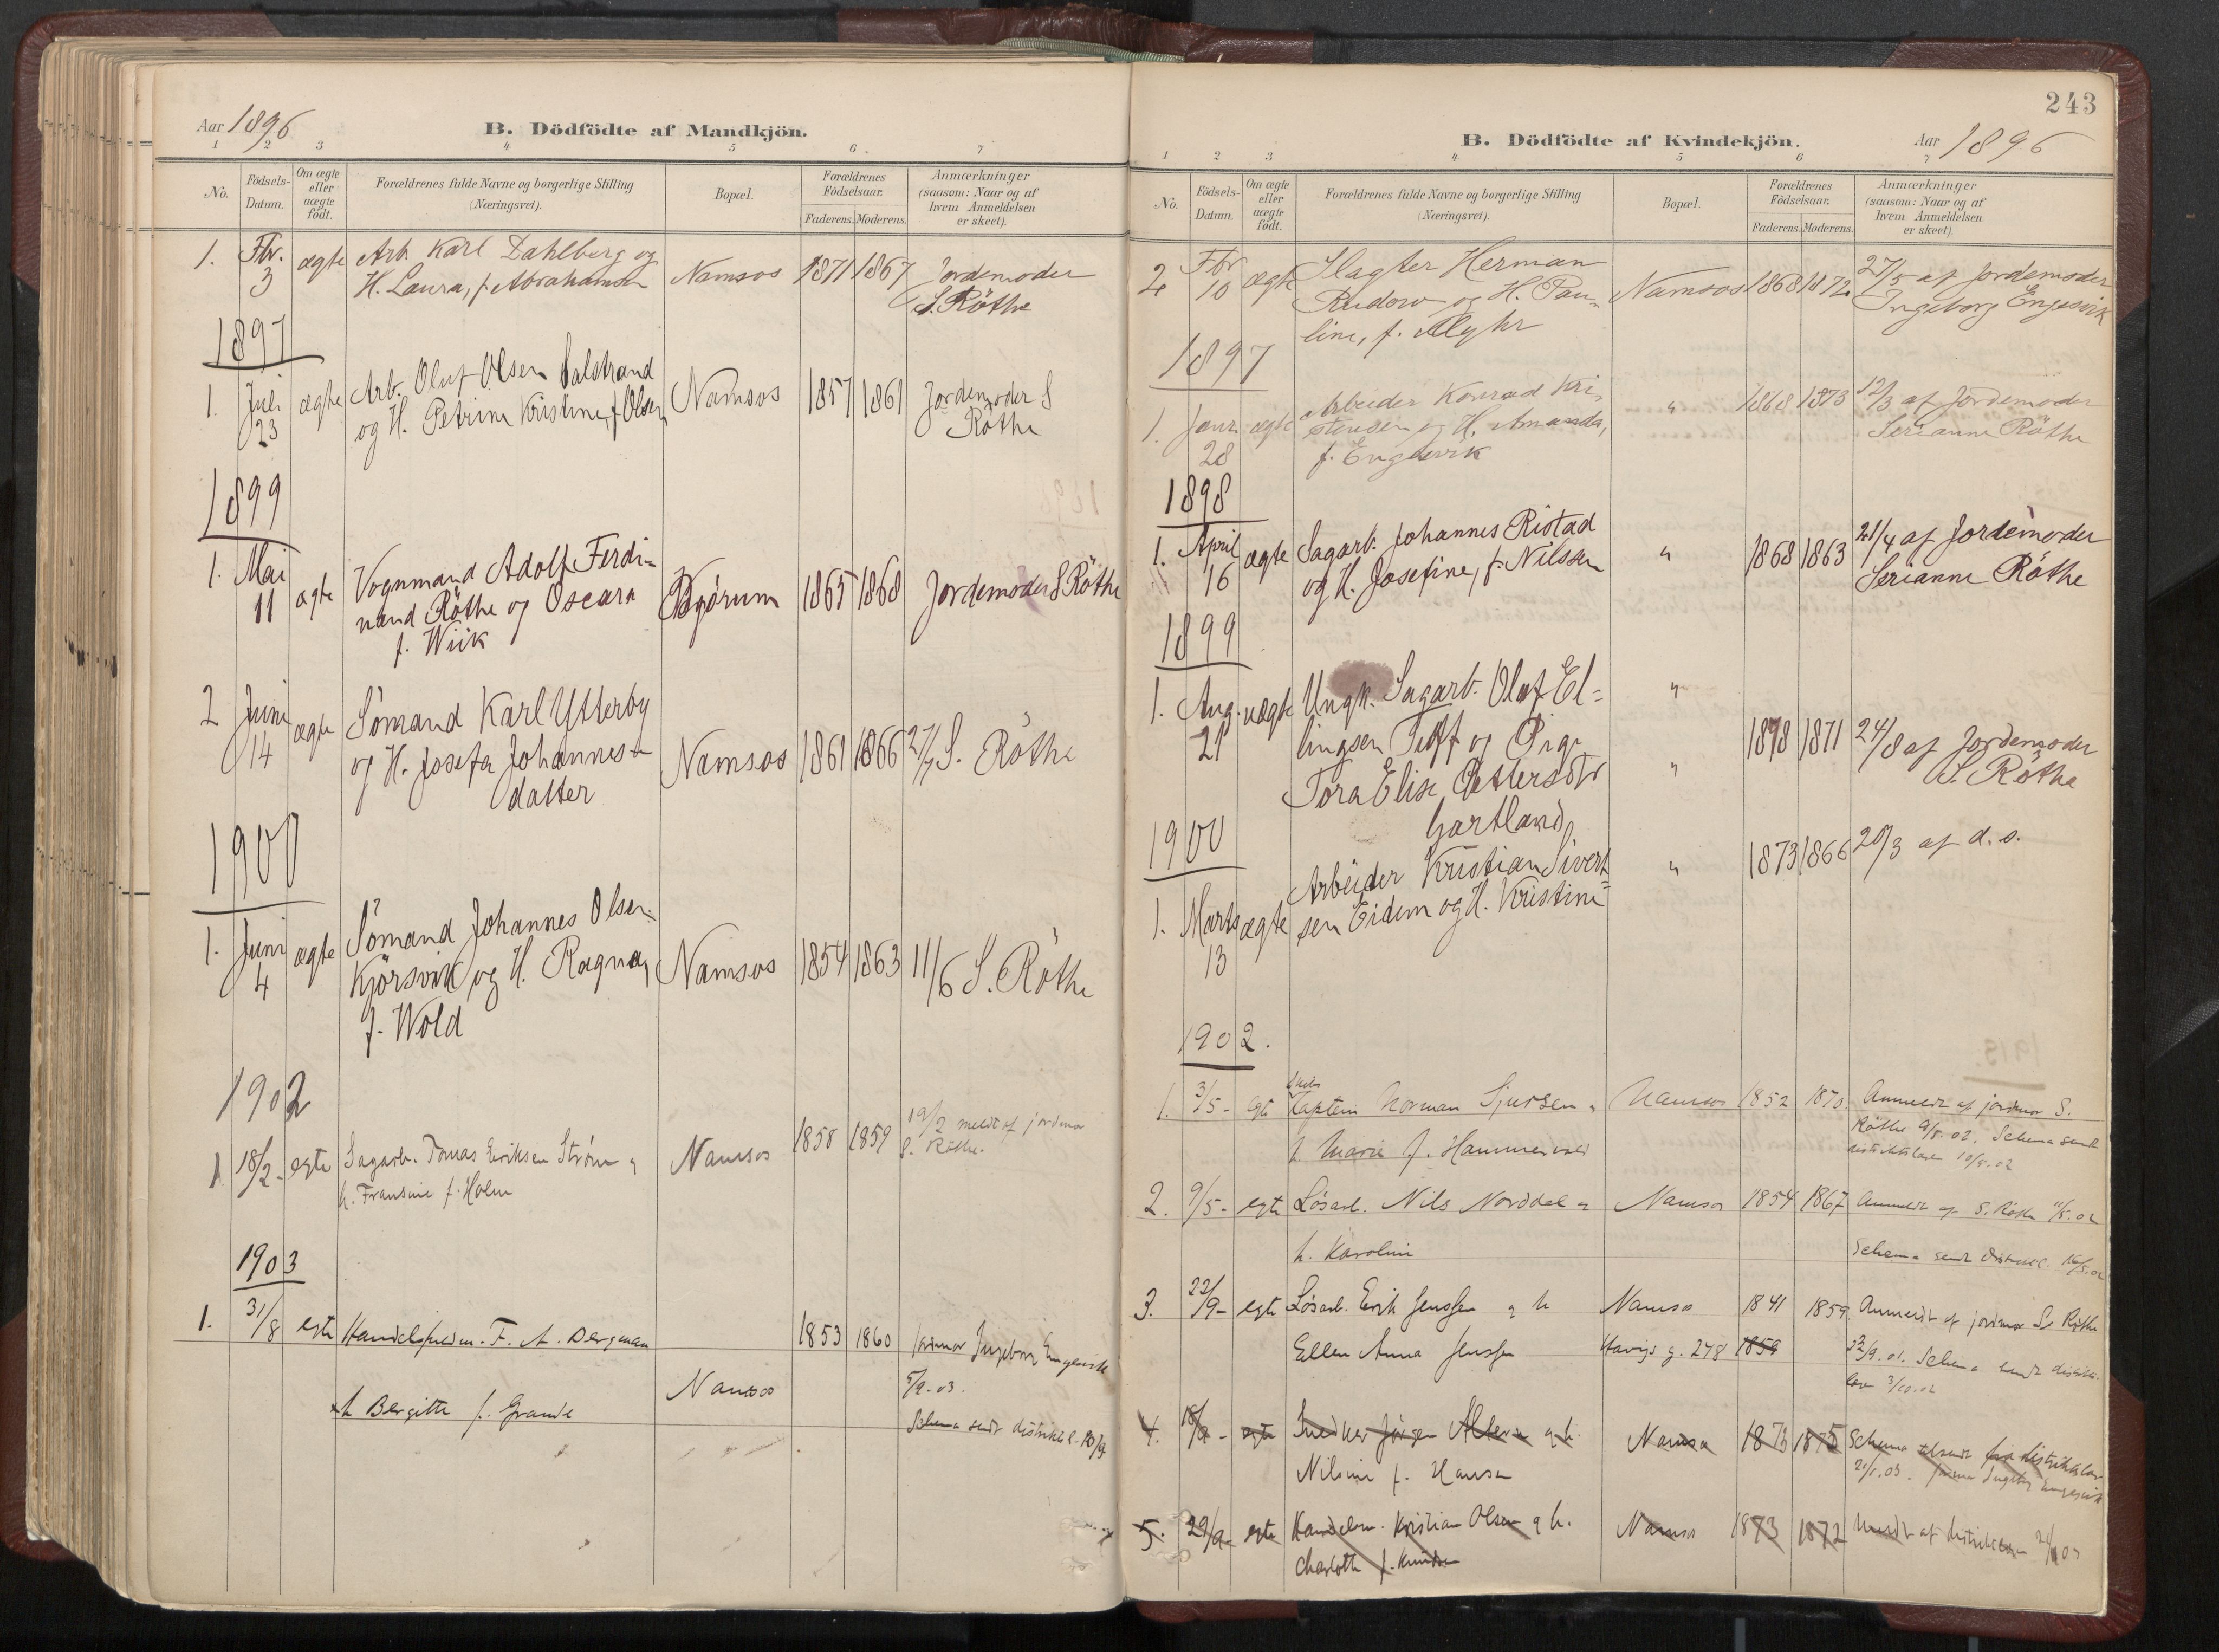 Aar 1896
B. Dödfödte af Mandkjön.
1 2 3 4 5 6 7
No.
Födsels-
Datum.
Om ægte
eller
uægte
født.
Forældrenes fulde Navne og borgerlige Stilling
(Næringsvei).
Bopæl.
Forældrenes
Födselsaar.
Faderens. Moderens.
Anmærkninger
(saasom: Naar og af
hvem Anmeldelsen
er skeet).
1. Fbr. ægte Arb Karl Dahlberg og Namsos 1871 1867 Jordemoder
3 H. Laura, f. Abrahamsen S. Röthe
1897
1. Juli ægte Arb. Oluf Olsen Salstrand Namsos 1857 1861 Jordemoder S
23 og H. Petrine Kristine, f Olsen Röthe
1899
1. Mai ægte Vognmand Adolf Ferdi- 1865 1868 Jordemoder S Röthe
11 nand Röthe og Oscara
f. Wiik
2 Juni ægte Sömand Karl Ytterby
14 og H. Josefa Johannes- Namsos 1861 1866 27/7 S. Röthe
datter
1900
1. Juni ægte Sömand Johannes Olsen
4 Kjörsvik og H. Ragna, Namsos 1854 1863 11/6 S. Röthe
f. Wold
1902
1 18/2- egte Sagarb. Tomas Eriksen Strøm Namsos 1858 1859 19/2 meldt af jordmor
h. Fransine f. Holm S. Röthe.
1903
1. 31/8 egte F. A. Bergman 1853 1860 jordmor Ingeborg Engesvik
h Bergitte f. Grande Namsos 5/9-03.
Schema sendt distriktsl.
243
B. Dödfödte af Kvindekjön.
Aar 1896
1 2 3 4 5 6 7
No.
Födsels-
Datum.
Om ægte
eller
uægte
födt.
Forældrenes fulde Navne og borgerlige Stilling
(Næringsvei).
Bopæl.
Forældrenes
Födselsaar.
Faderens. Moderens.
Anmærkninger
(saasom: Naar og af
hvem Anmeldelsen
er skeet).
2 Fbr ægte Slagter Herman Namsos 1868 1872 27/5 af Jordemoder
10 Rudow og H. Pau- Ingeborg Engesvik
line, f. Myhr
1897
1. Janr. ægte Arbeider Konrad Kri- " 1868 1873 12/3 af Jordemoder
28 stensen og H. Amanda, Serianne Röthe
f. Engesvik
1898
1. April ægte Sagarb. Johannes Ristad " 1868 1863 21/4 af Jordemoder
16 og H. Josefine, f. Nilssen Serianne Röthe
1899
1. Aug. uægte Ungk. Sagarb. Olaf El- "
21 lingsen og Pige 1898 1871 24/8 af Jordemoder
Tora Elise Pettersdtr " S. Röthe
Gartland
1900
Arbeider Kristian Sivert- " 1873 1866 20/3 af d. s.
1. Marts ægte sen Eidem og H. Kristine
13
1902.
1. 3/5- egte Skibs
Kaptein Norman Sjursen Namsos 1852 1870 Anmeldt af jordmor S.
h Marie f. Röthe 9/5.02. Schema sendt
distriktslægen 10/5.02
2. 9/5- egte Løsarb. Nils Norddal Namsos 1854 1867 Anmeldt af S. Röthe 11/5.02
h. Karoline Schema sendt
3. 22/9- egte Løsarb. Erik Jenssen h Namsos 1841 1859 Anmeldt af jordmor S. Röthe
Ellen Anna Jenssen Havigs g. 278 1859 Schema sendt
4. 18/9- egte Jørgen h. Namsos 1873 1875 Schema
Nilsine f. Hansen
5. 29/9- egte Handelsm. Kristian Olsen h. Namsos 1873 1872 Meldt af
Charlotte f. Knudsen